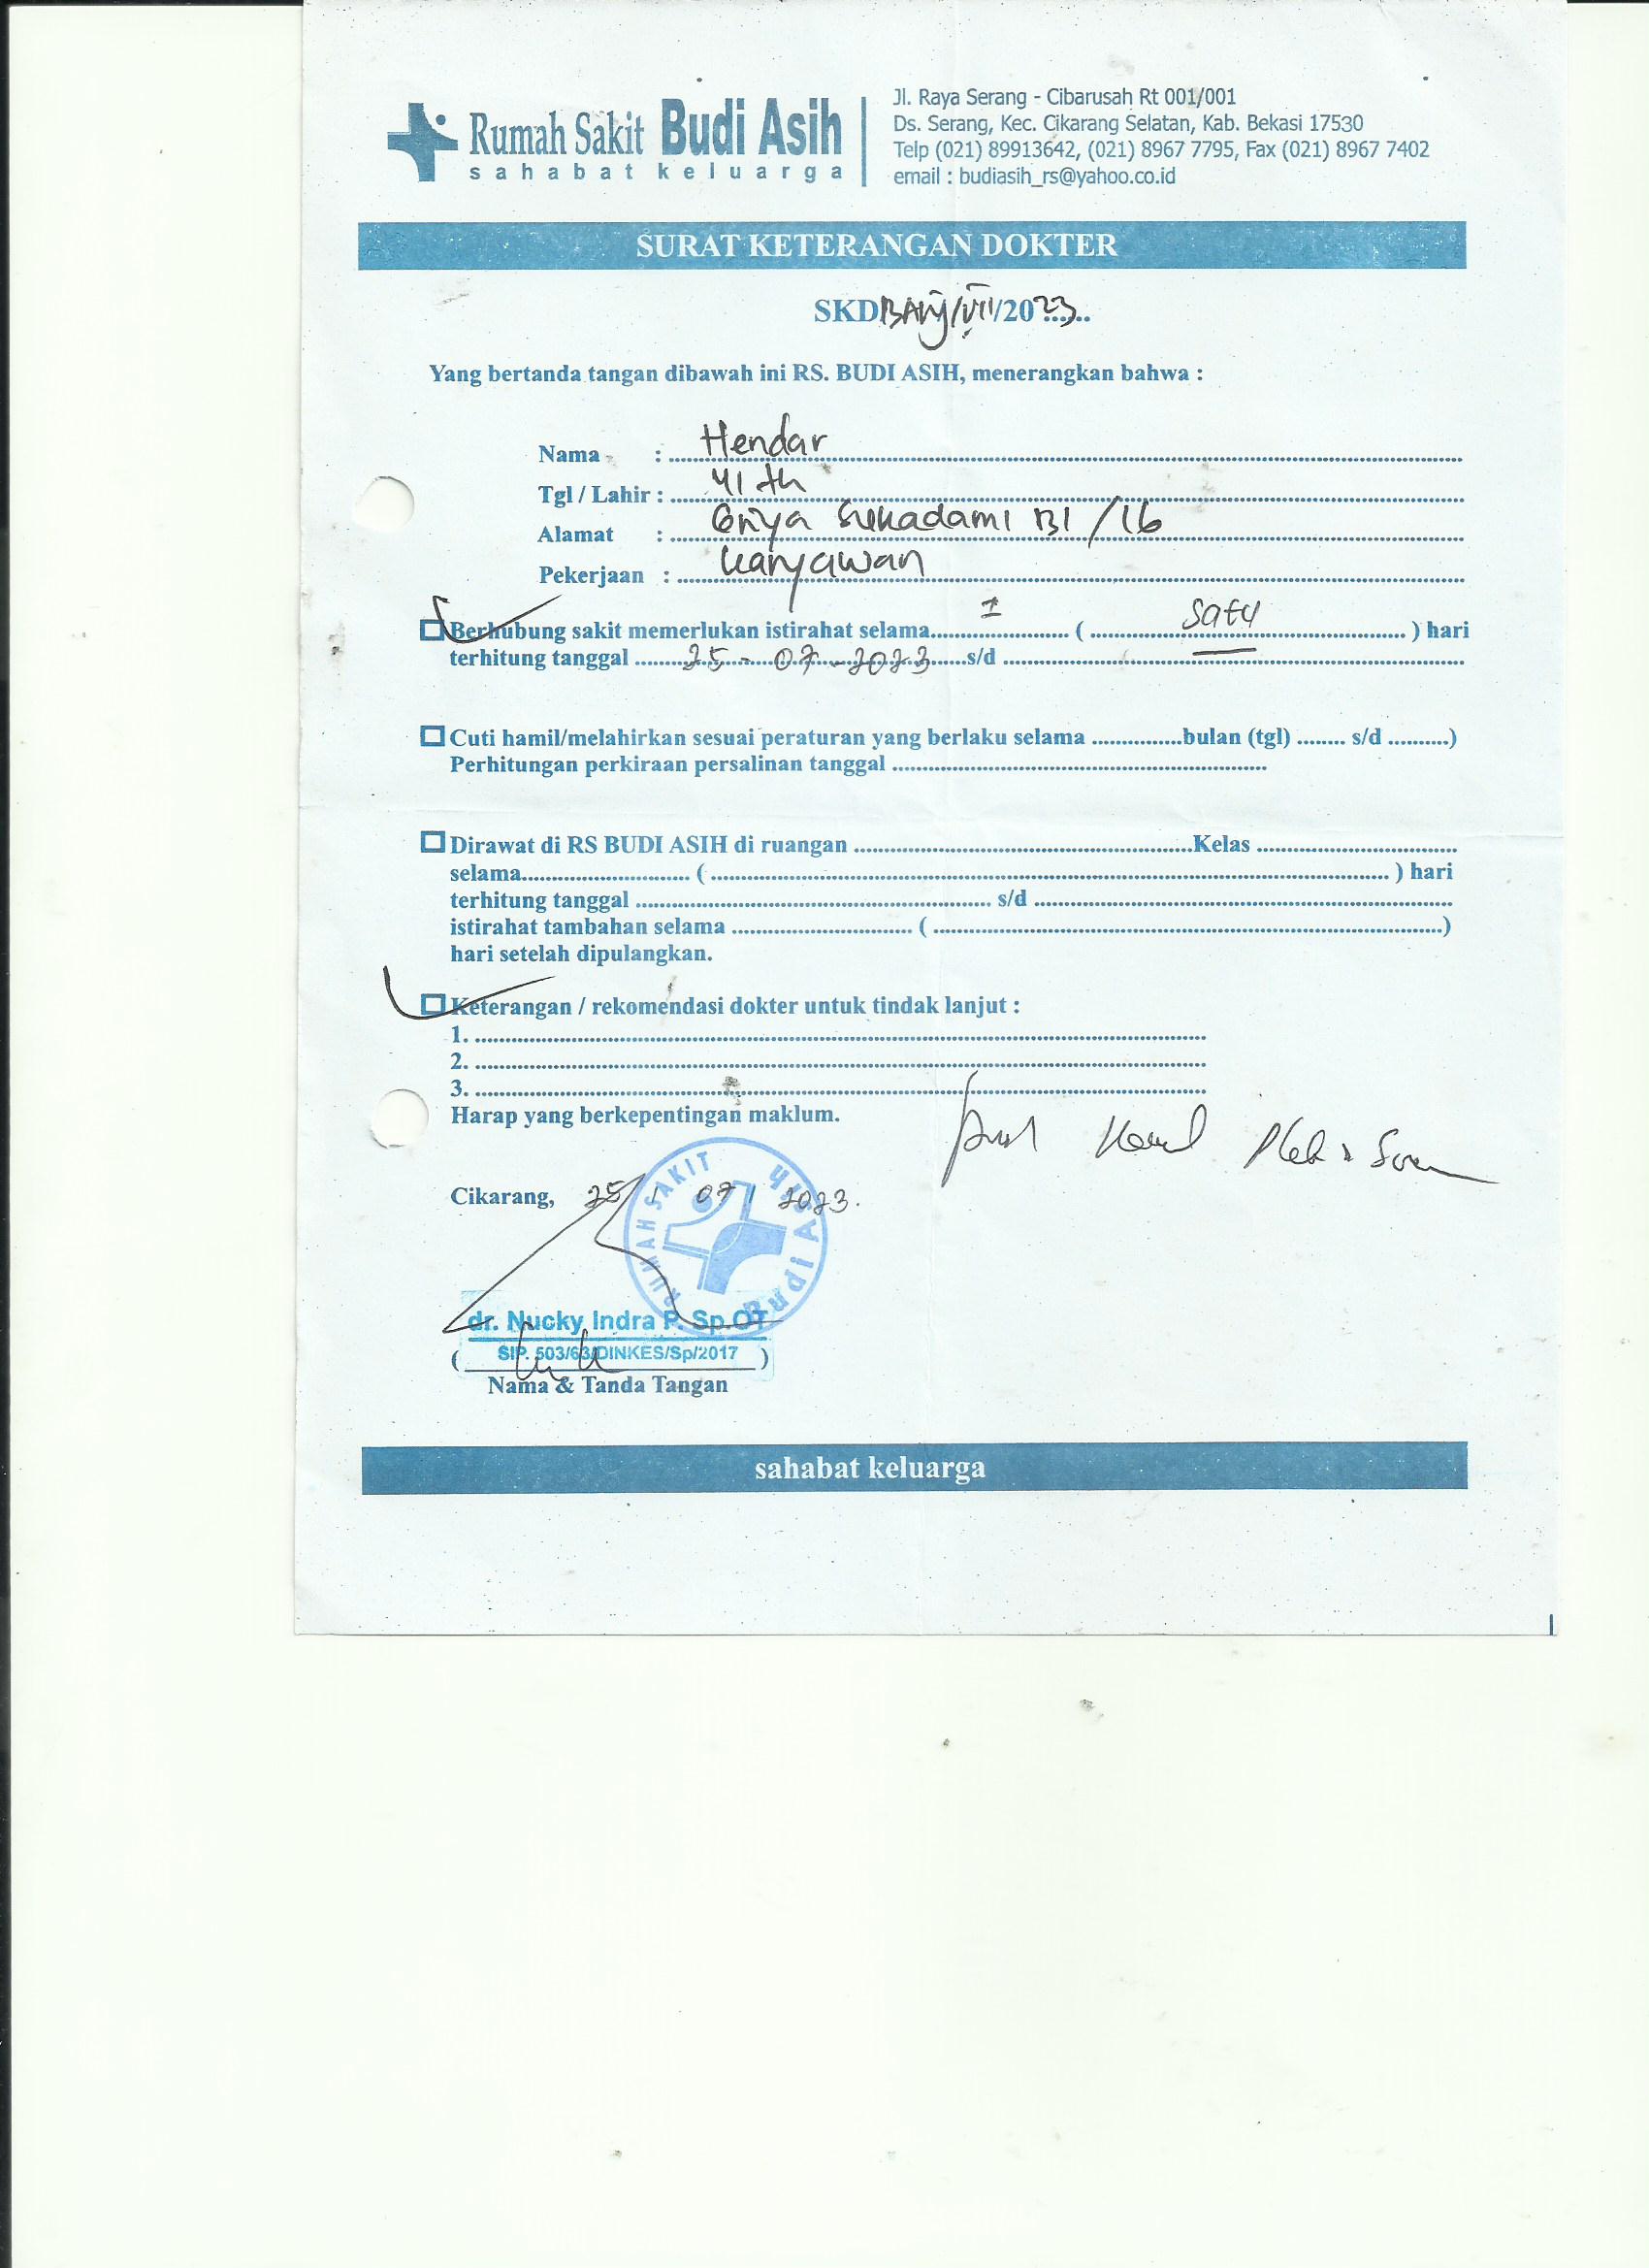 Rumah Sakit Budi Asih
sahabat keluarga
Jl. Raya Serang - Cibarusah Rt 001/001
Ds. Serang, Kec. Cikarang Selatan, Kab. Bekasi 17530
Telp (021) 89913642, (021) 8967 7795, Fax (021) 8967 7402
email : budiasih_rs@yahoo.co.id
SURAT KETERANGAN DOKTER
SKD /VII/2023
Yang bertanda tangan dibawah ini RS. BUDI ASIH, menerangkan bahwa :
Nama : Hendar
Tgl / Lahir : 41 th
Alamat : Griya Sukadami B1 /16
Pekerjaan : Karyawan
Berhubung sakit memerlukan istirahat selama 1 ( Satu ) hari
terhitung tanggal 25 - 07 - 2023 s/d
Cuti hamil/melahirkan sesuai peraturan yang berlaku selama ...............bulan (tgl) ........ s/d ..........)
Perhitungan perkiraan persalinan tanggal
Dirawat di RS BUDI ASIH di ruangan Kelas
selama ( ) hari
terhitung tanggal s/d
istirahat tambahan selama ( )
hari setelah dipulangkan.
Keterangan / rekomendasi dokter untuk tindak lanjut :
1.
2.
3.
Harap yang berkepentingan maklum.
Cikarang, 25 / 07 / 2023.
RUMAH SAKIT Budi Asih
dr. Nucky Indra P. Sp.OT
( SIP. 503/63/DINKES/Sp/2017 )
Nama & Tanda Tangan
sahabat keluarga